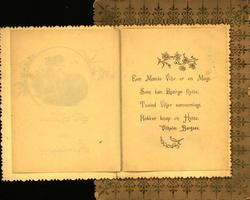 Een Mands Vilje er en Magt,
Som kan Bjerge flytte,
Tusind Viljer
Rokker knap en Hytte.
Vilhelm Bergsøe.